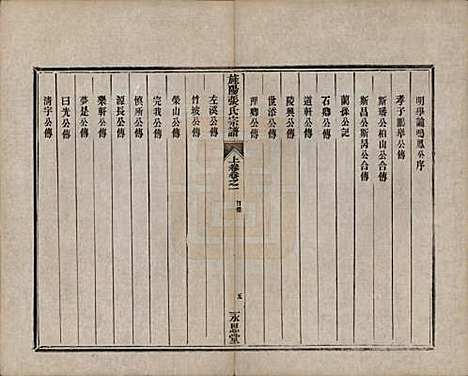 明學諭鳴鳳公序
孝子鵬舉公傳
斯瑤公柏山公合傳
斯昌公斯勗公合傳
蘭孫公記
石鄉公傳
道軒公傳
陵興公傳
世濟公傳
理鄉公傳
旌陽張氏宗譜
上卷卷之一
目錄
五
永思堂
左溪公傳
竹坡公傳
榮山公傳
完我公傳
慎所公傳
源長公傳
樂軒公傳
夢是公傳
日光公傳
清宇公傳